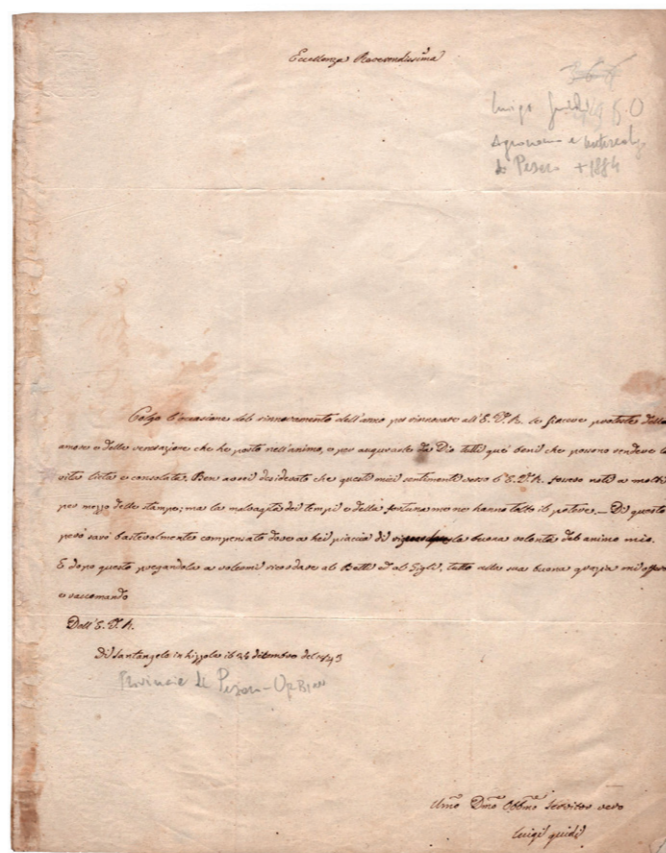 Eccellenza Reverendissima
Luigi Guidi
Agronomo e
di Pesaro +1884
Colgo l'occasione del rinnovamento dell'anno per rinnovare all'E. V. R. le sincere proteste dell'
amore e della venerazione che ho posto nell'animo, e per augurarle da Dio tutti que' beni che possono rendere la
vita lieta e consolata. Ben avrei desiderato che questi miei sentimenti verso l'E. V. R. fossero noti a molti
per mezzo delle stampe; ma la malvagità dei tempi e della fortuna me ne hanno tolto il potere. — Di questo
però sarò bastevolmente compensato dove a Lei piaccia di la buona volontà del animo mio.
E dopo questo pregandola a volermi ricordare al Betti e al Gigli, tutto nella sua buona grazia mi offero
e raccomando
Dell'E. V. R.
Di Santangelo in Lizzola il 26 ditembre del 1843
Provincia di Pesaro-Urbino
Umo Dmo Obbmo Servitor vero
Luigi Guidi